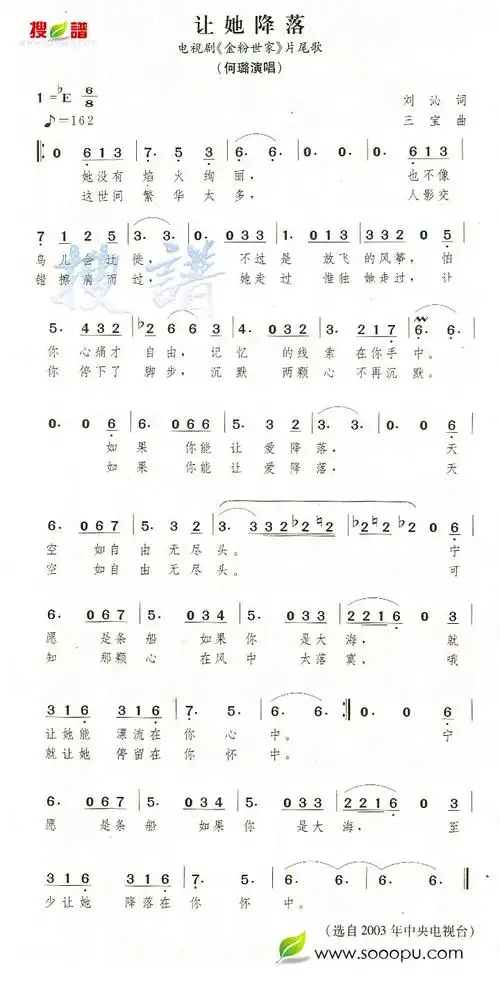 搜谱
让她降落
电视剧《金粉世家》片尾歌
(何璐演唱)
1=♭E 6/8
♪=162
刘沁 词
三宝 曲
0 6 1 3 | 7. 5 3 | 6. 6. | 0. 0. | 0 6 1 3
她没有 焰火绚丽, 也不像
这世间 繁华太多, 人影交
7 1 2 5 | 3. 3. | 0. 0 3 3 | 1. 0 1 3 | 3 3 2 0 5
鸟儿会迁徙, 不过是 放飞的风筝, 怕
错擦肩而过, 她走过 惟独她走过, 让
你 心痛才 自由, 记忆 的线索 在你手中。
你 停下了 脚步, 沉默 两颗心 不再沉默。
0. 0 6 | 6. 0 6 6 | 5. 3 2 | 3. 3. | 0. 0 6
如果 你能让爱降落, 天
如果 你能让爱降落, 天
空 如自由无尽头。 宁
空 如自由无尽头。 可
6. 0 6 7 | 5. 0 3 4 | 5. 0 3 3 | 2 2 1 6 0 3
愿 是条船 如果你 是大海, 就
知 那颗心 在风中 太落寞, 哦
3 1 6 3 1 6 | 7. 5. | 6. 6. :‖ 0. 0 6
让她能 漂流在你 心中。 宁
就让她 停留在你 怀中。
愿 是条船 如果你 是大海, 至
少让她 降落在你 怀中。
(选自2003年中央电视台)
www.sooopu.com
搜谱